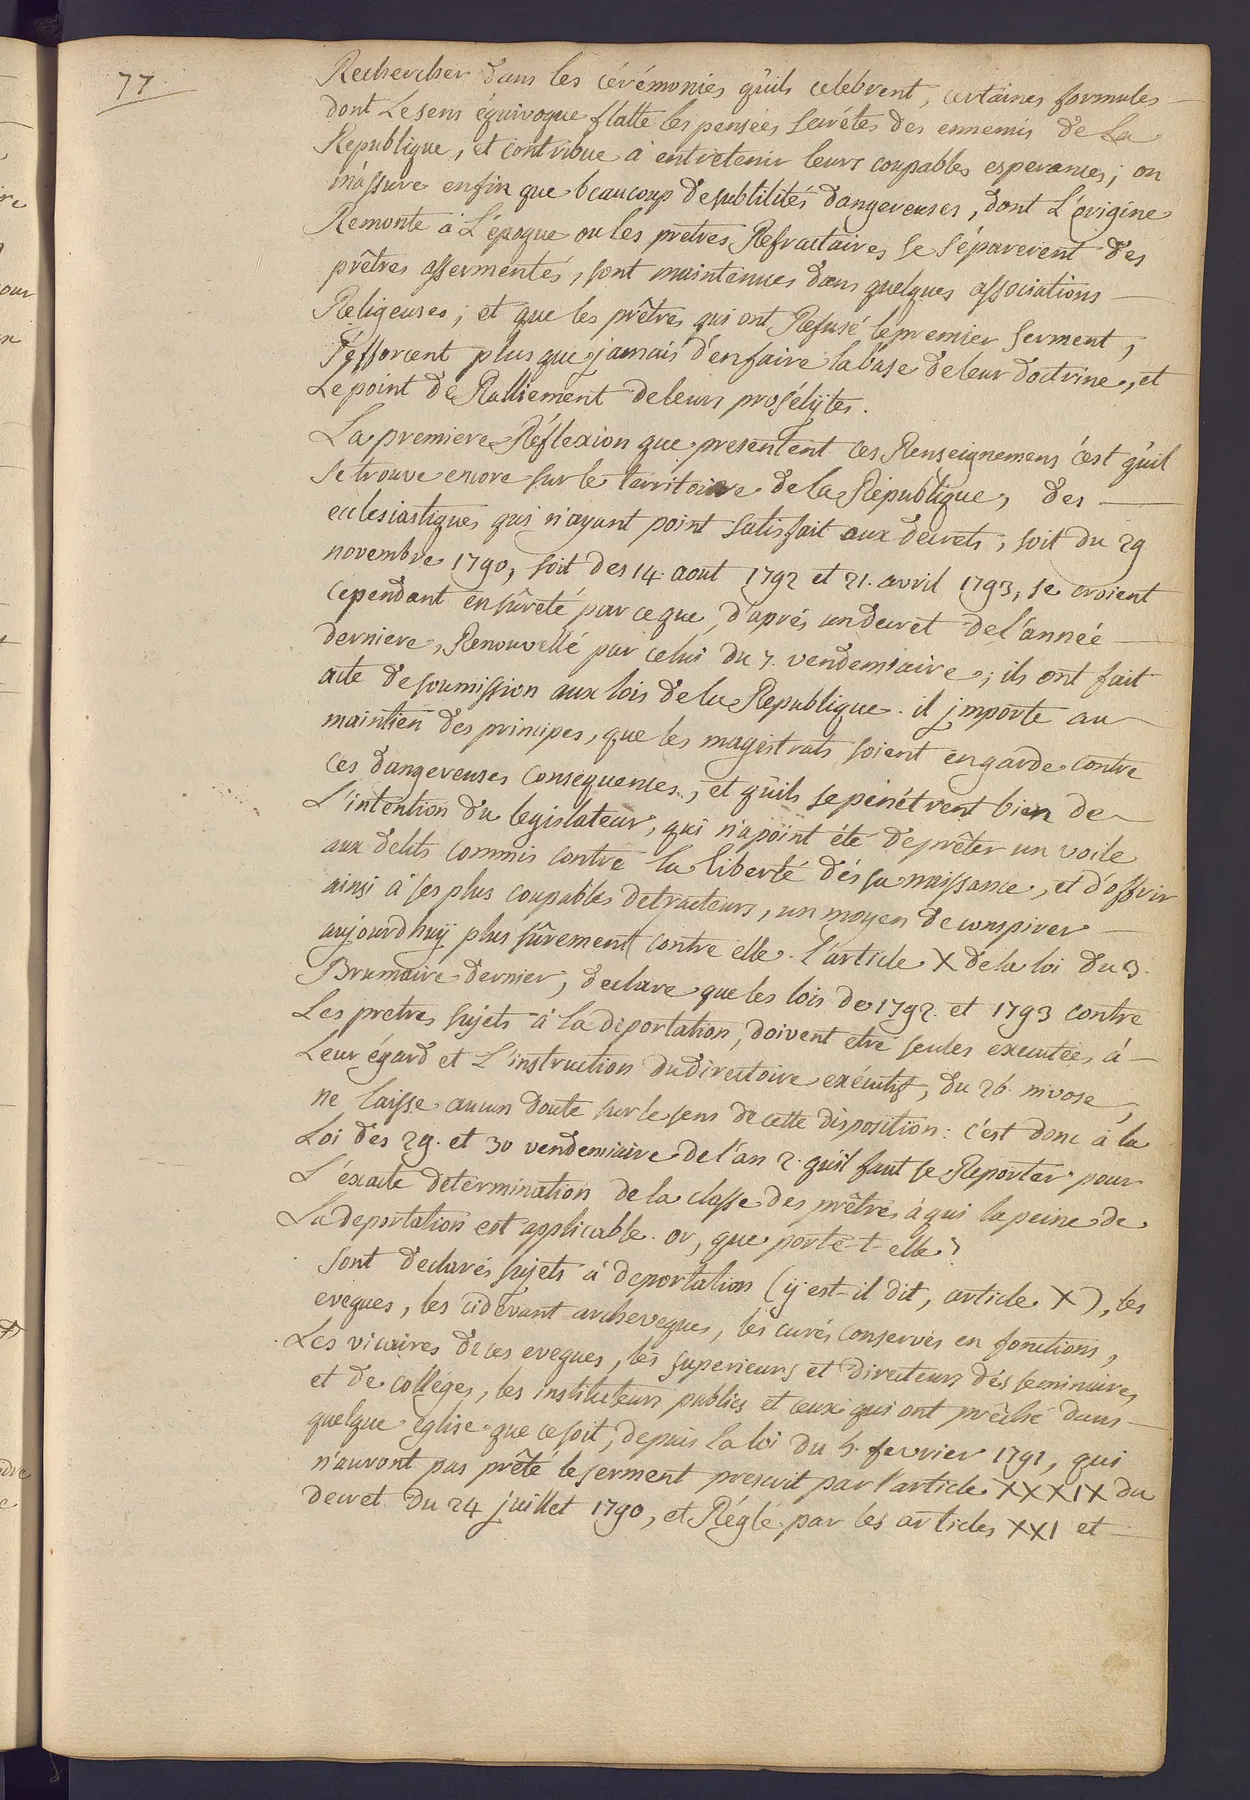 77.
Rechercher dans les cérémonies qu'ils celebrent, certaines formules
dont Le sens équivoque flatte les pensées secrétes des ennemis de La
Republique, et contribue à entretenir leurs coupables esperances; on
m'assure enfin que beaucoup de subtilités dangereuses, dont L'origine
Remonte à L'époque ou les prètres Refractaires se séparerent des
prêtres assermentés, sont maintenues dans quelques associations
Religeuses; et que les prêtres qui ont Refusé le premier serment,
s'efforcent plus que jamais d'en faire la base de leur doctrine, et
Le point de Ralliement de leurs prosélytes.
La premiere Réflexion que presentent ces Renseignemens c'est qu'il
se trouve encore sur le territoire de la République, des
ecclesiastiques qui n'ayant point satisfait aux decrets, soit du 29
novembre 1790, soit des 14. aout 1792 et 21. avril 1793, se croient
cependant en sûreté par ce que, d'aprés un decret de l'année
derniere, Renouvellé par celui du 7. vendemiaire, ils ont fait
acte de soumission aux lois de la Republique. il jmporte au
maintien des principes, que les magistrats soient en garde contre
ces dangereuses consequences, et qu'ils se pénétrent bien de
L'intention du legislateur, qui n'a point été de prêter un voile
aux delits commis contre la liberté dés sa naissance, et d'offrir
ainsi à ses plus coupables detracteurs, un moyen de conspirer
aujourdhuÿ plus sûrement contre elle. l'article X de la loi du 3.
Brumaire dernier, declare que les lois de 1792. et 1793 contre
Les pretres sujets à la déportation, doivent etre seules executées à
Leur égard et L'instruction du directoire exécutif, du 26. nivose,
ne laisse aucun doute sur le sens de cette disposition: c'est donc à la
Loi des 29. et 30 vendemiaire de l'an 2. qu'il faut se Reporter pour
L'éxacte determination de la classe des prêtres à qui la peine de
La deportation est applicable. or, que porte-t-elle?
Sont declarés sujets à deportation (ÿ est-il dit, article X), les
eveques, les cidevant archeveques, les curés conservés en fonctions,
Les vicaires de ces eveques, les superieurs et directeurs dés seminaires,
et de colléges, les instituteurs publics et ceux qui ont prêché dans
quelque église que ce soit, depuis la loi du 5. fevrier 1791, qui
n'auront pas prêté le serment prescrit par l'article XXXIX du
decret du 24 juillet 1790, et Réglé par les articles XXI et